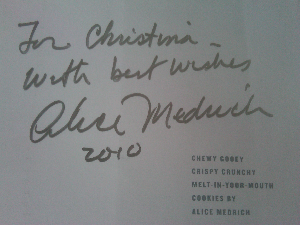 For Christina –
With best wishes
Alice Medrich
2010
CHEWY GOOEY
CRISPY CRUNCHY
MELT-IN-YOUR-MOUTH
COOKIES BY
ALICE MEDRICH